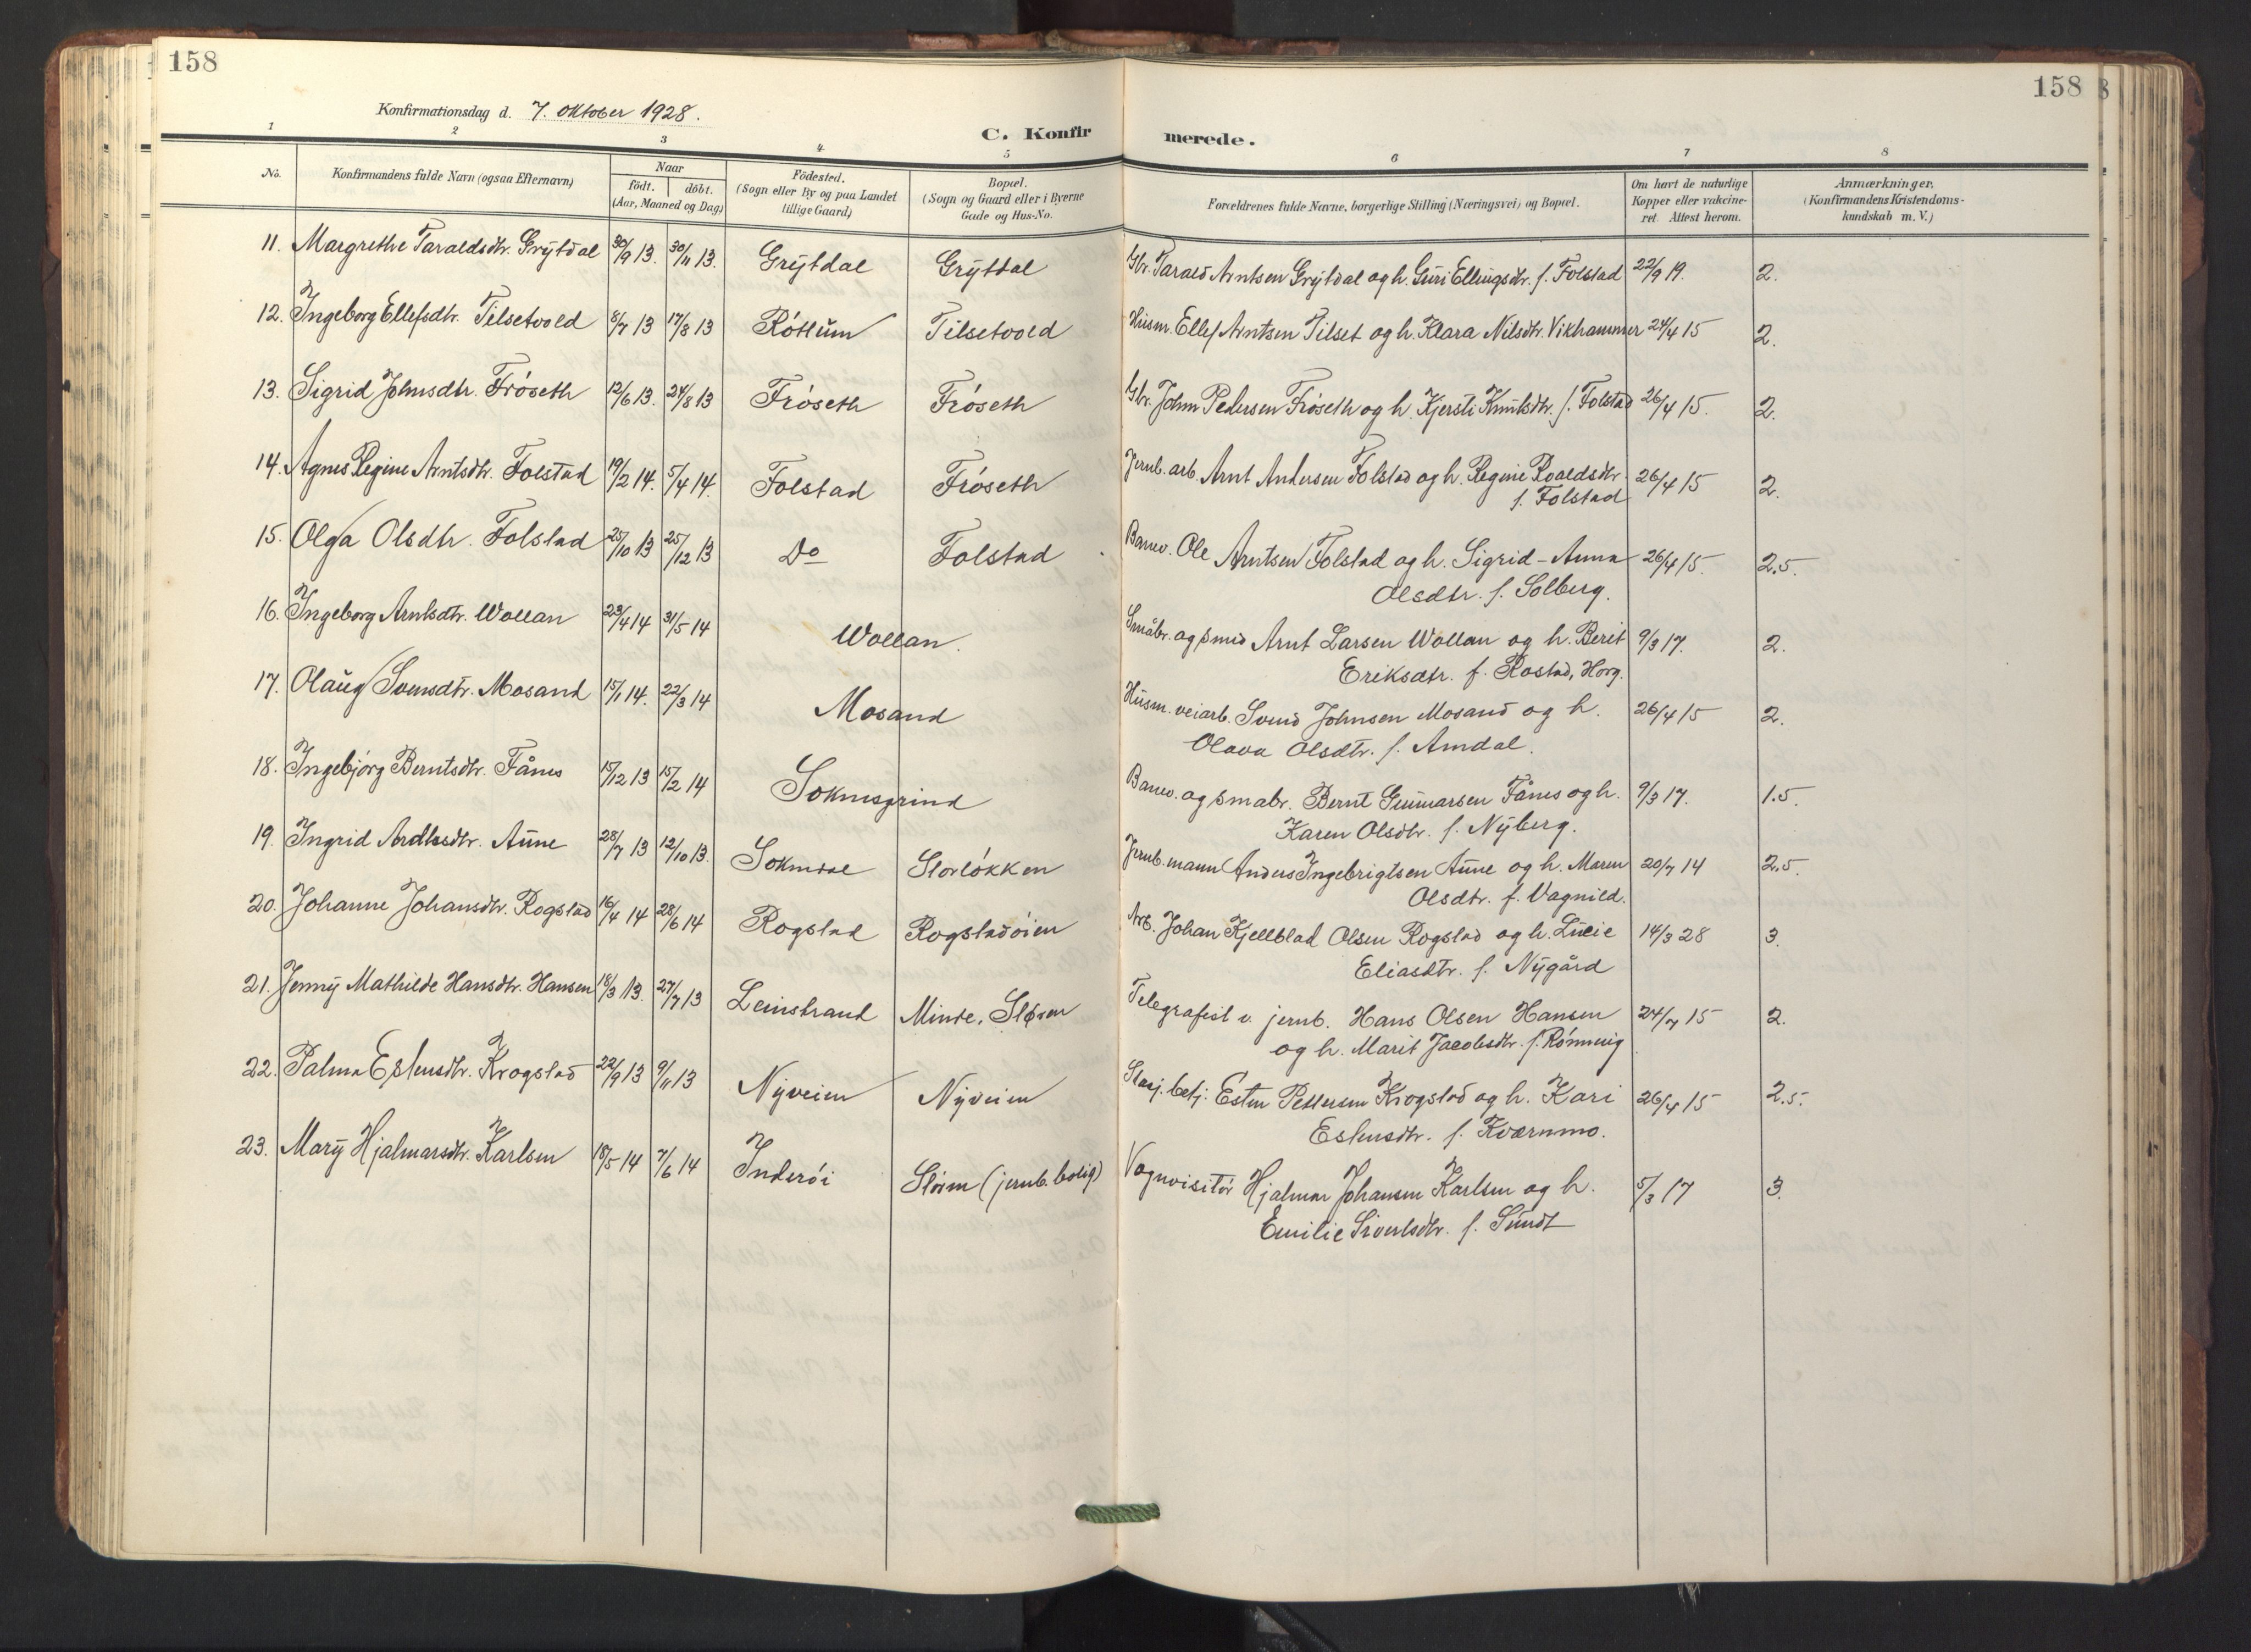 158
158
Konfirmationsdag d. 7. oktober 1928.
C. Konfirmerede.
1 2 3 4 5 6 7 8
No.
Konfirmandens fulde Navn (ogsaa Efternavn)
Naar
födt. döbt.
(Aar, Maaned og Dag)
Födested.
(Sogn eller By og paa Landet
tillige Gaard)
Bopæl.
(Sogn og Gaard eller i Byerne
Gade og Hus-No.
Forældrenes fulde Navne, borgerlige Stilling (Næringsvei) og Bopæl.
Om havt de naturlige
Kopper eller vakcine-
ret. Attest herom.
Anmærkninger,
(Konfirmandens Kristendoms-
kundskab m. V.)
11. Margrethe Taraldsdtr. Grytdal 30/9 13. 30/11 13. Grytdal Grytdal Gbr. Tarald Arntsen Grytdal og h. Guri Ellingsdtr. f. Folstad 22/9 19. 2.
12. Ingeborg Ellefsdtr. Tilsetvold 8/7 13 17/8 13 Röttum Tilsetvold Husm. Ellef Arntsen Tilset og h. Klara Nilsdtr. Vikhammer 24/4 15 2.
13. Sigrid Johnsdtr. Fröseth 12/6 13. 24/8 13 Fröseth Fröseth Gbr. John Pedersen Fröseth og h. Kjersti Knutsdtr. f. Folstad 26/4 15. 2.
14. Agnes Regine Arntsdtr. Folstad 19/2 14. 5/4 14. Folstad Fröseth Jernb. arb. Arnt Andersen Folstad og h. Regine Roaldsdtr. 26/4 15 2.
f. Folstad
15. Olga Olsdtr. Folstad 25/10 13 25/12 13 Do Folstad Banev. Ole Arntsen Folstad og h. Sigrid-Anna 26/4 15. 2.5.
Olsdtr. f. Solberg.
16. Ingeborg Arntsdtr. Wollan 23/4 14 31/5 14 Wollan. Småbr. og smed Arnt Larsen Wollan og h. Berit 9/3 17. 2.
Eriksdtr. f. Rostad, Horg.
17. Olaug Svensdtr. Mosand 15/1 14. 22/3 14 Mosand Husm. veiarb. Svend Johnsen Mosand og h. 26/4 15 2.
Olava Olsdtr. f. Amdal.
18. Ingebjörg Berntsdtr. Fånes 15/12 13 15/2 14 Soknesgrind Banev. og småbr. Bernt Gunnarsen Fånes og h. 9/3 17. 1.5.
Karen Olsdtr. f. Nyberg.
19. Ingrid Andersdtr. Aune 28/7 13 12/10 13. Soknedal Storlökken Jernb. mann Anders Ingebrigtsen Aune og h. Maren 20/7 14 2.5.
Olsdtr. f. Vagnild.
20. Johanne Johansdtr. Rogstad 16/4 14 28/6 14 Rogstad Rogstadöien Arb. Johan Kjellblad Olsen Rogstad og h. Lucie 14/3 28 3.
Eliasdtr. f. Nygård
21. Jenny Mathilde Hansdtr. Hansen 18/3 13. 27/7 13 Leinstrand Minde, Stören Telegrafist v. jernb. Hans Olsen Hansen 24/4 15 2.
og h. Marit Jacobsdtr. f. Rönning
22. Palma Estensdtr. Krogstad 22/9 13 9/11 13 Nyveien Nyveien Stasj. betj. Esten Pettersen Krogstad og h. Kari 26/4 15 2.5.
Estensdtr. f. Kværnmo.
23. Mary Hjalmarsdtr. Karlsen 18/5 14 7/6 14 Inderöi Stören (jernb. bolig) Vognvisitör Hjalmar Johansen Karlsen og h. 5/3 17 3.
Emilie Sivertsdtr. f. Sundt